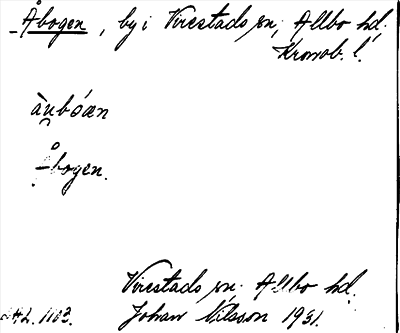 Åbogen, by i Virestads sn, Allbo hd,
Kronob. l.
àubóæn
Åbogen.
Virestads sn. Allbo hd.
Johan Nilsson 1931.